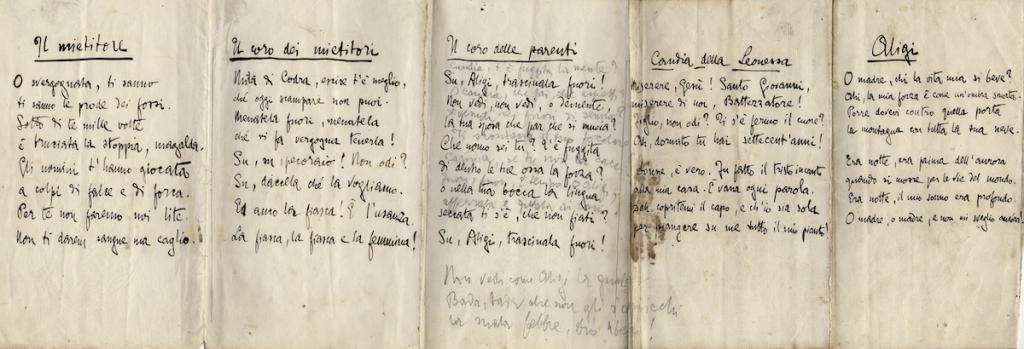 Il mietitore
O svergognata, ti sanno
ti sanno le prode dei fossi.
Sotto di te mille volte
è bruciata la stoppia, magalda.
Gli uomini t'hanno giocata
a colpi di falce e di forca.
Per te non faremo noi lite.
Non ti darem sangue ma caglio.
Il coro dei mietitori
Mila di Codra, escire t'è meglio,
ché oggi scampare non puoi.
Menatela fuori, menatela
ché vi fa vergogna tenerla!
Su, su pecoraio! Non odi?
Su, daccela ché la vogliamo.
Ed anco la fiasca! È l'usanza.
La fiasca, la fiasca e la femmina!
Il coro delle parenti
Su, Aligi, trascinala fuori!
Non vedi, non vedi, o demente,
la tua sposa che par che si muoia?
Che uomo sei tu? T'è fuggita
di dentro le tue ossa la forza?
o nella tua bocca la lingua
seccata ti s'è, che non fiati?
Su, Aligi, trascinala fuori!
Non vedi come Aligi la
Bada, bada che non gli
la mala febbre,
Candia della Leonessa
Miserere, Gesù! Santo Giovanni,
miserere di noi, Battezzatore!
Figlio, non odi? Ti s'è fermo il cuore?
Ohi, dormito tu hai settecent'anni!
è vero. Fu fatto il tristo incanto
alla mia casa. È vana ogni parola.
copritemi il capo, e ch'io sia sola
per piangere su me tutto il mio pianto!
Aligi
O madre, chi la vita mia si beve?
Ohi, la mia forza è come un'ombra smorta.
Porre dovevi contro quella porta
la montagna con tutta la sua neve.
Era notte, era prima dell'aurora
quando si mosse per le vie del mondo.
Era notte, il mio sonno era profondo.
O madre, o madre, e non mi sveglio ancora!